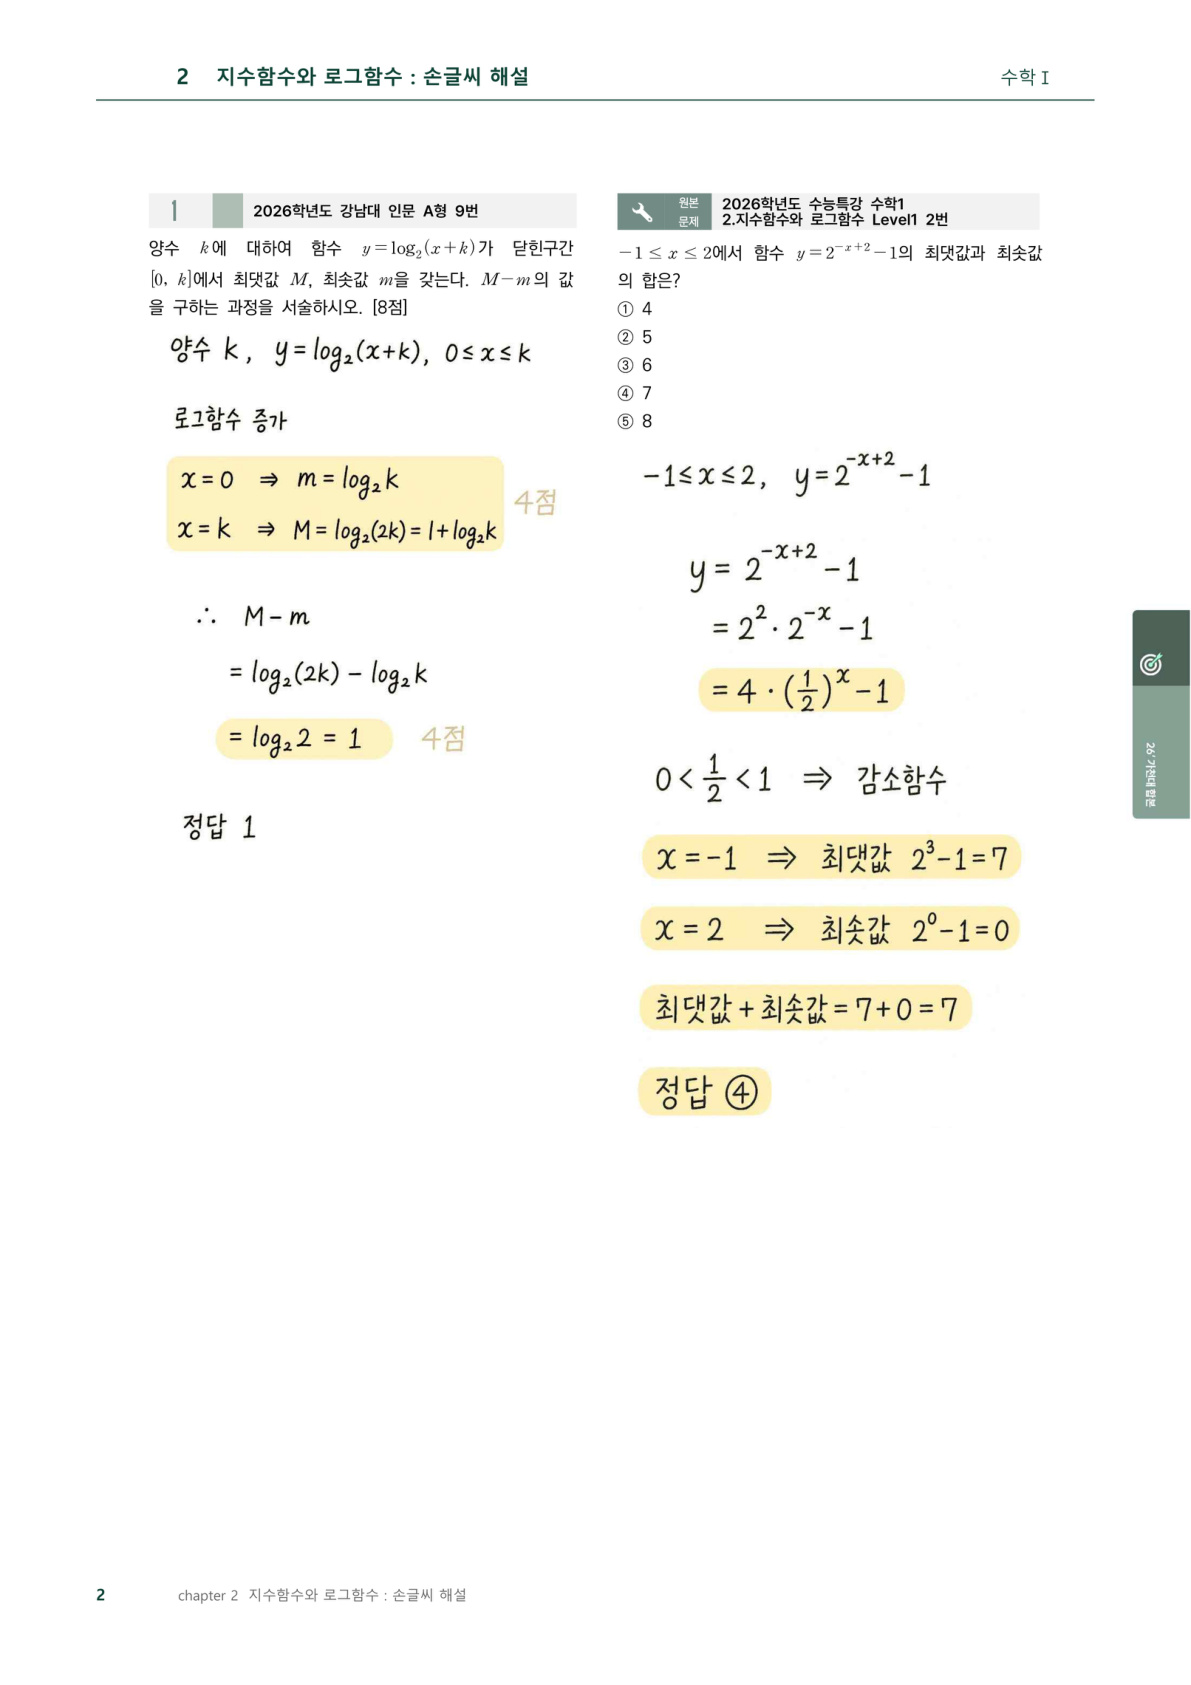 2 지수함수와 로그함수 : 손글씨 해설
수학 I
1
2026학년도 강남대 인문 A형 9번
양수 k에 대하여 함수 y=log₂(x+k)가 닫힌구간
[0, k]에서 최댓값 M, 최솟값 m을 갖는다. M-m의 값
을 구하는 과정을 서술하시오. [8점]
양수 k, y=log₂(x+k), 0≤x≤k
로그함수 증가
x=0 ⇒ m=log₂k
x=k ⇒ M=log₂(2k)=1+log₂k
4점
∴ M-m
=log₂(2k)-log₂k
=log₂2=1 4점
정답 1
원본
문제
2026학년도 수능특강 수학1
2.지수함수와 로그함수 Level1 2번
-1≤x≤2에서 함수 y=2^{-x+2}-1의 최댓값과 최솟값
의 합은?
① 4
② 5
③ 6
④ 7
⑤ 8
-1≤x≤2, y=2^{-x+2}-1
y=2^{-x+2}-1
=2²·2^{-x}-1
=4·(1/2)^x-1
0<1/2<1 ⇒ 감소함수
x=-1 ⇒ 최댓값 2³-1=7
x=2 ⇒ 최솟값 2⁰-1=0
최댓값+최솟값=7+0=7
정답 ④
26' 가천대 합본
2 chapter 2 지수함수와 로그함수 : 손글씨 해설